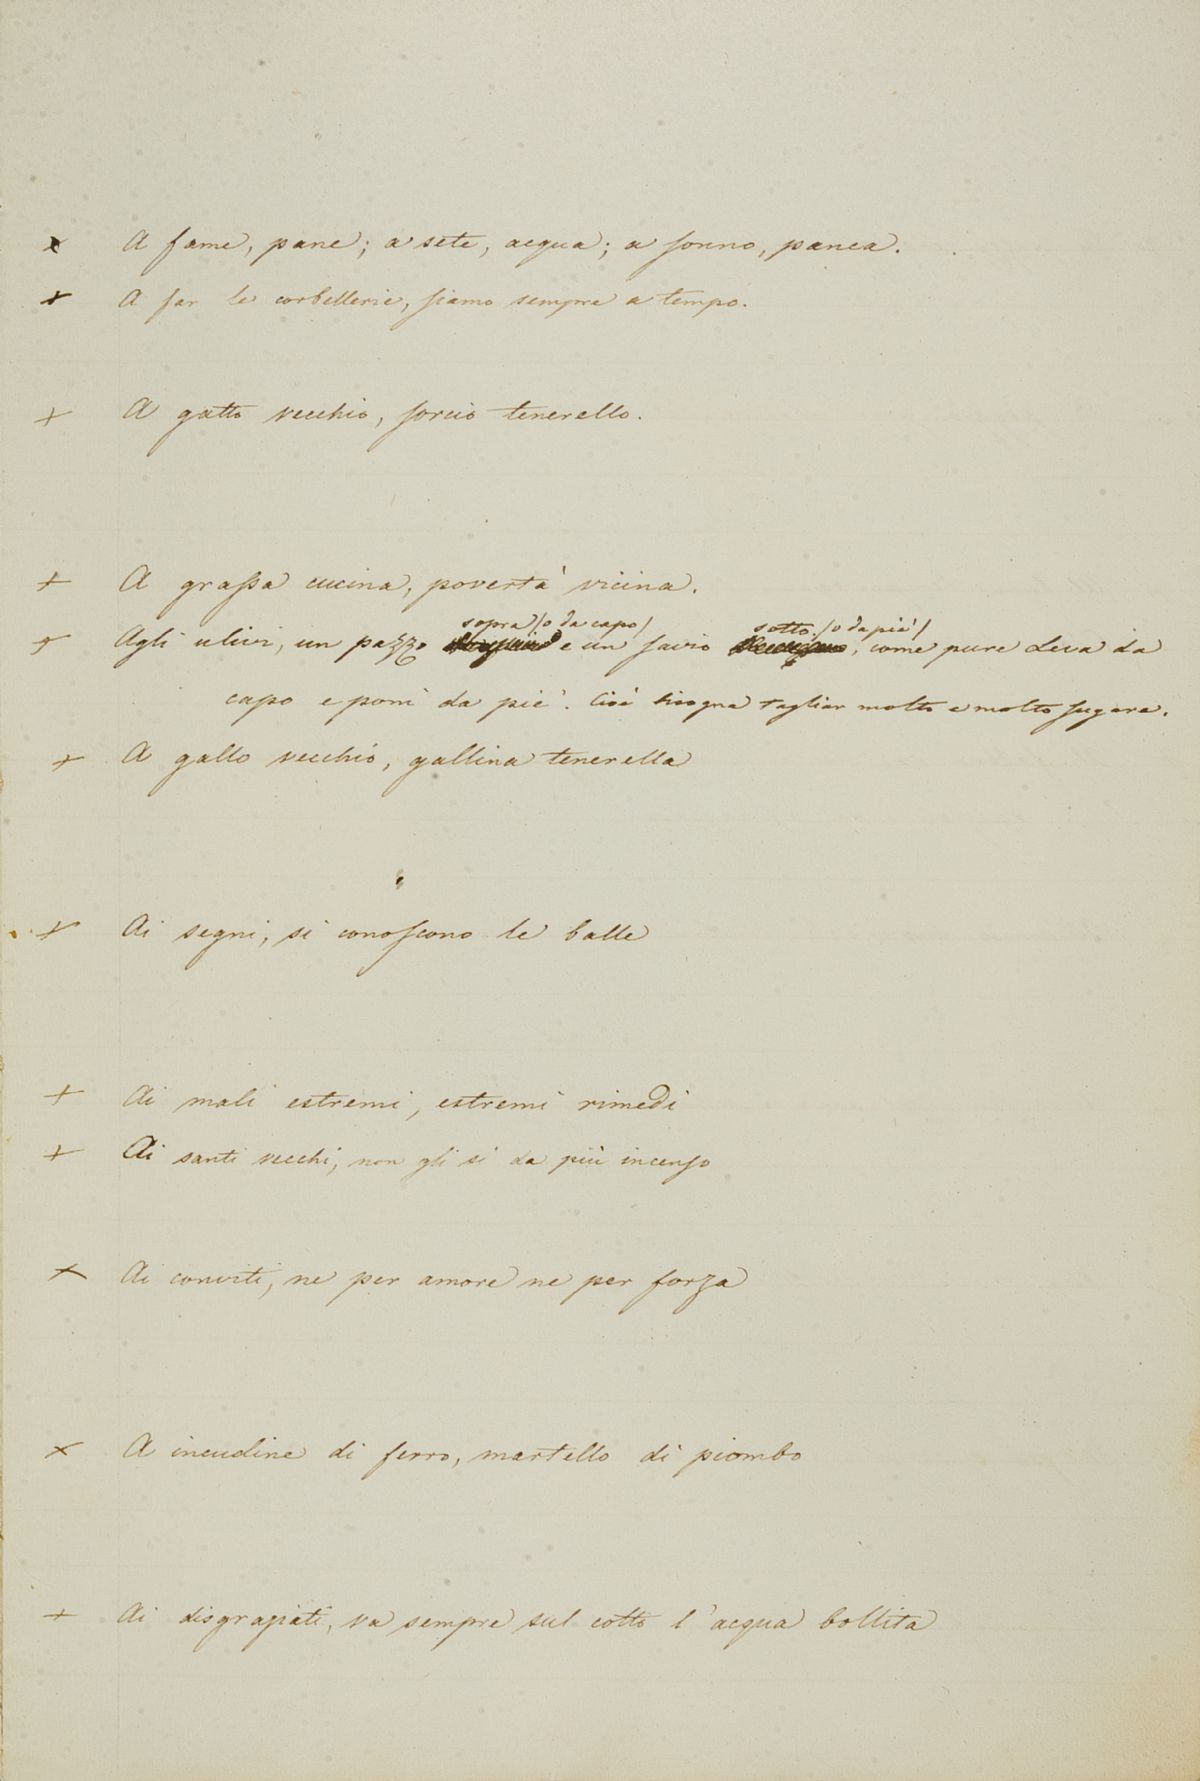 x A fame, pane; a sete, acqua; a sonno, panca.
x A far le corbellerie, siamo sempre a tempo.
x A gatto vecchio, sorcio tenerello.
x A grassa cucina, povertà vicina.
sopra /o da capo/ sotto /o da piè/
x Agli ulivi, un pazzo e un savio , come pure Leva da
capo e poni da piè. Cioè bisogna tagliar molto e molto sugare.
x A gallo vecchio, gallina tenerella
x Ai segni, si conoscono le balle
x Ai mali estremi, estremi rimedi
x Ai santi vecchi, non gli si da più incenso
x Ai conviti, ne per amore ne per forza
x A incudine di ferro, martello di piombo
x Ai disgraziati, va sempre sul cotto l'acqua bollita